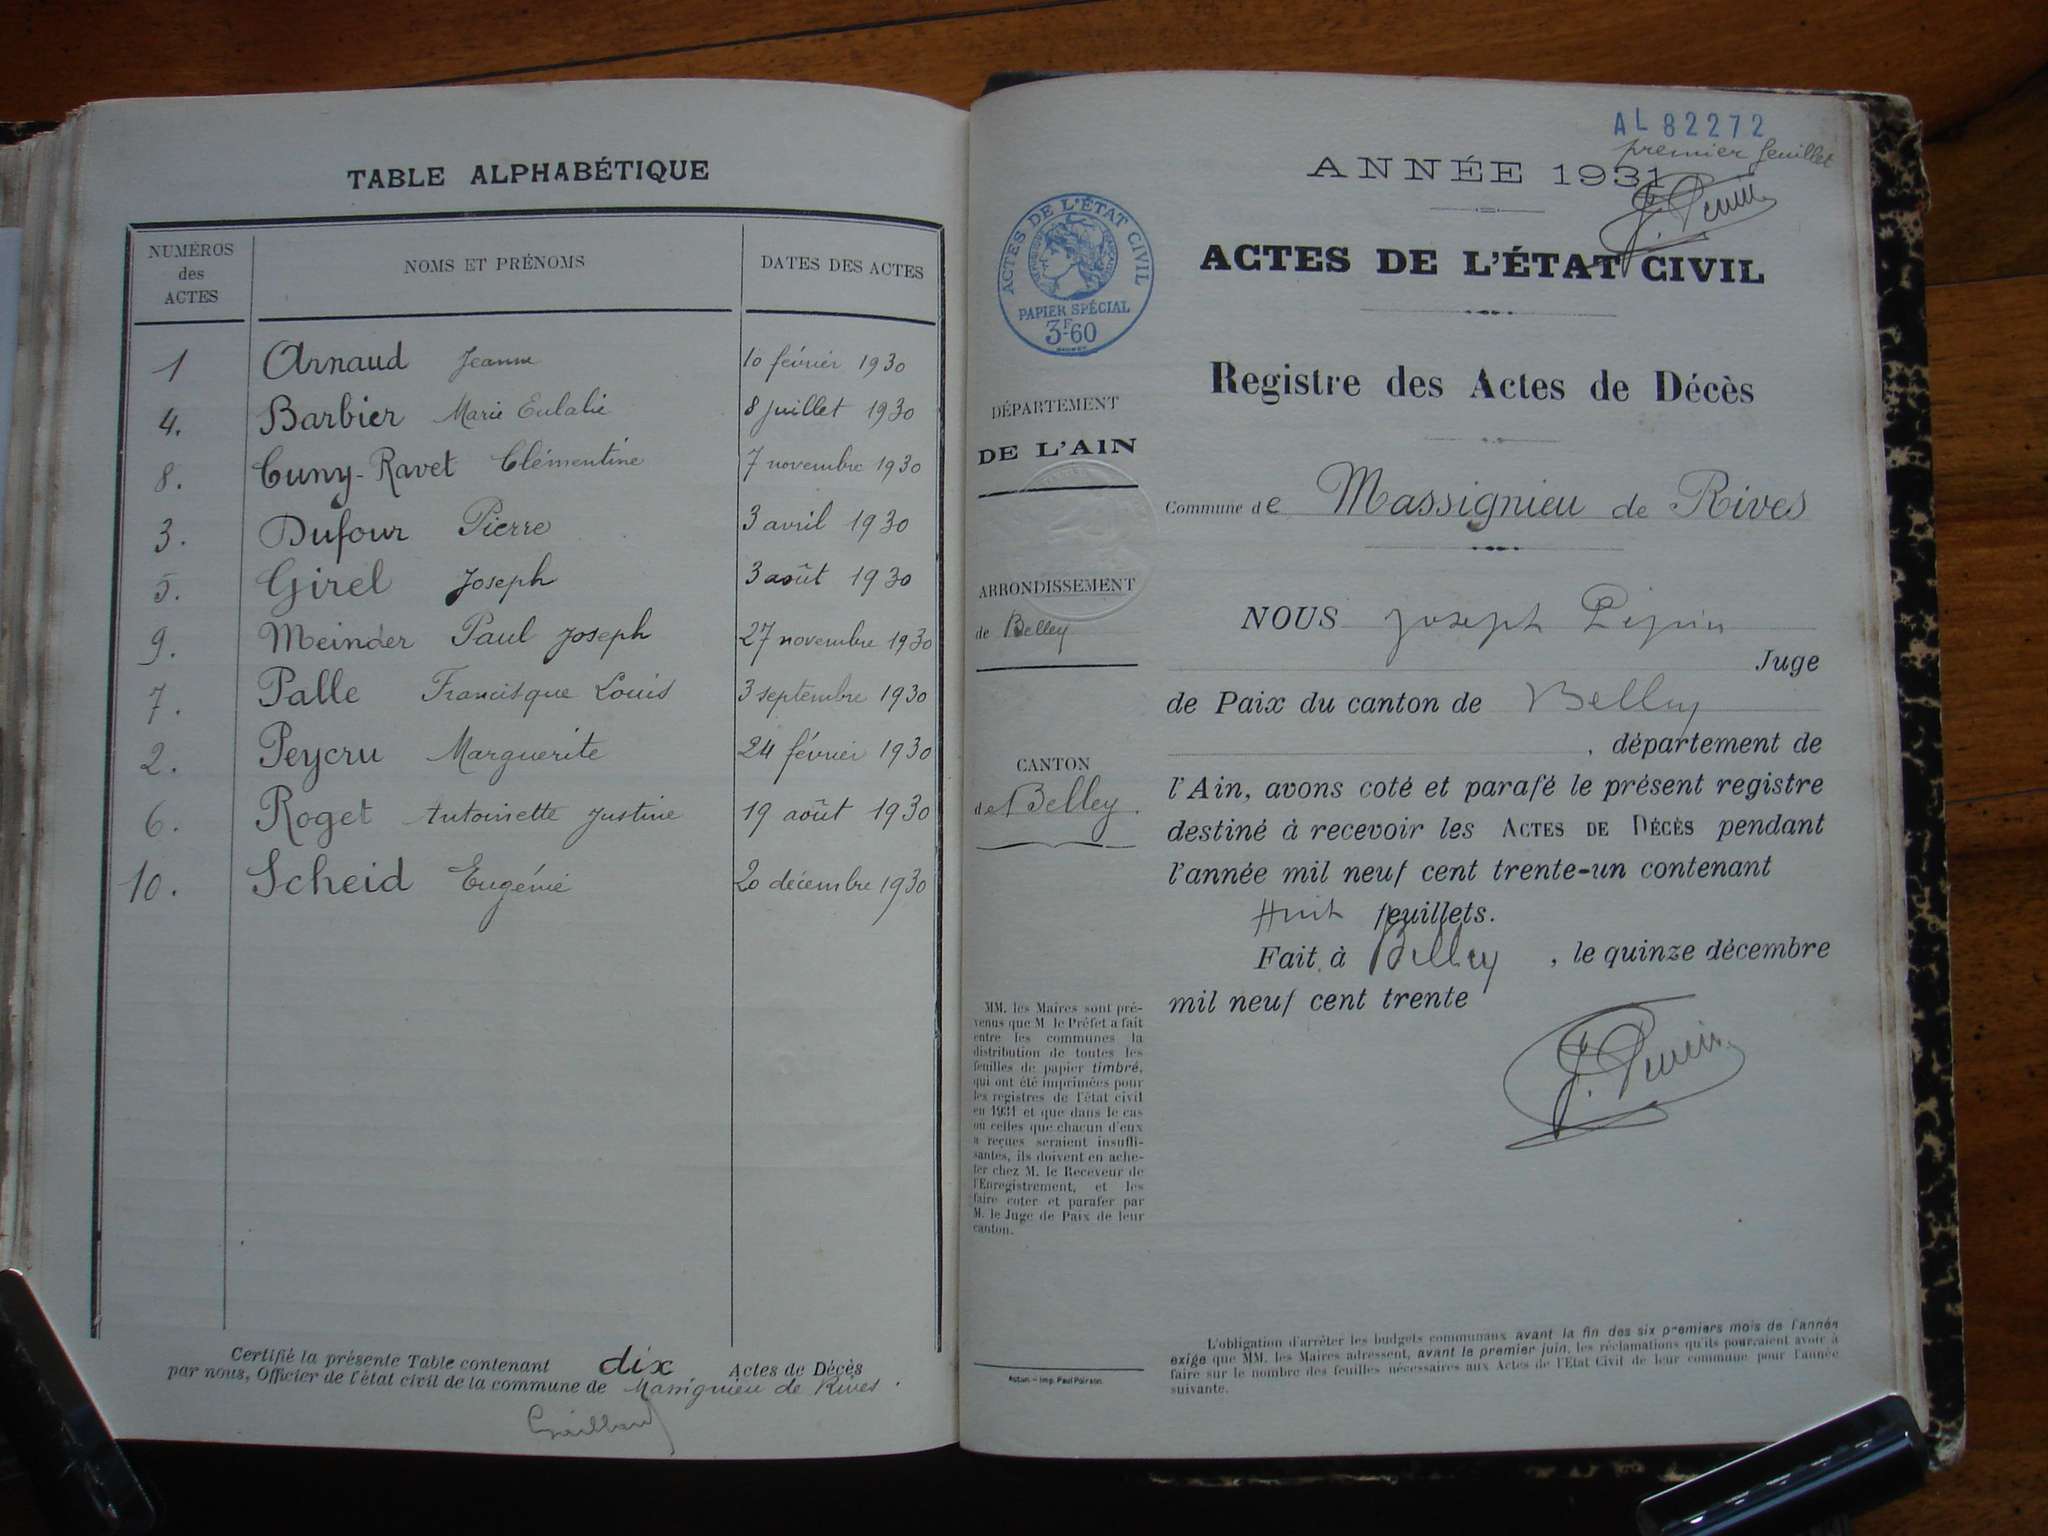 TABLE ALPHABÉTIQUE
NUMÉROS des ACTES NOMS ET PRÉNOMS DATES DES ACTES
1 Arnaud Jeanne 10 février 1930
4. Barbier Marie Eulalie 8 juillet 1930
8. Cuny-Ravet Clémentine 7 novembre 1930
3. Dufour Pierre 3 avril 1930
5. Girel Joseph 3 août 1930
9. Meinder Paul Joseph 27 novembre 1930
7. Palle Francisque Louis 3 septembre 1930
2. Peycru Marguerite 24 février 1930
6. Roget Antoinette Justine 19 août 1930
10. Scheid Eugénie 20 décembre 1930
Certifié la présente Table contenant dix Actes de Décès
par nous, Officier de l'état civil de la commune de Massignieu de Rives.
AL 82272
premier feuillet
ANNÉE 1931
ACTES DE L'ÉTAT CIVIL
PAPIER SPÉCIAL
3F60
ACTES DE L'ÉTAT CIVIL
Registre des Actes de Décès
DÉPARTEMENT
DE L'AIN
ARRONDISSEMENT
de Belley
CANTON
de Belley.
MM. les Maires sont pré-
venus que M. le Préfet a fait
entre les communes la
distribution de toutes les
feuilles de papier timbré,
qui ont été imprimées pour
les registres de l'état civil
en 1931 et que dans le cas
où celles que chacun d'eux
a reçues seraient insuffi-
santes, ils doivent en ache-
ter chez M. le Receveur de
l'Enregistrement, et les
faire coter et parafer par
M. le Juge de Paix de leur
canton.
Imp. Paul Poirson
Commune de Massignieu de Rives
NOUS Joseph
Juge
de Paix du canton de Belley
, département de
l'Ain, avons coté et parafé le présent registre
destiné à recevoir les ACTES DE DÉCÈS pendant
l'année mil neuf cent trente-un contenant
Huit feuillets.
Fait à Belley, le quinze décembre
mil neuf cent trente
L'obligation d'arrêter les budgets communaux avant la fin des six premiers mois de l'année
exige que MM. les Maires adressent, avant le premier juin, les réclamations qu'ils pourraient avoir à
faire sur le nombre des feuilles nécessaires aux Actes de l'Etat Civil de leur commune pour l'année
suivante.